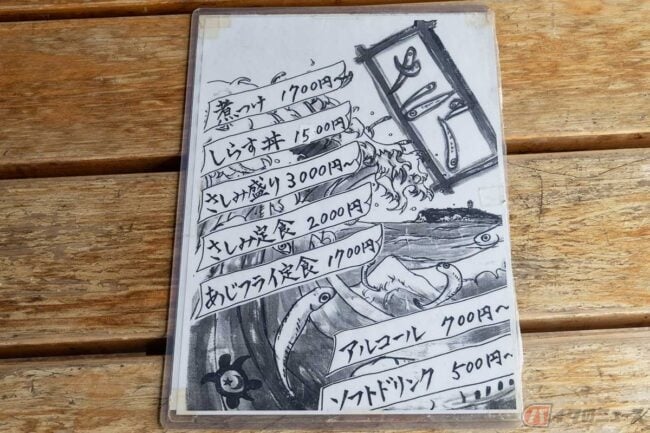 めにゅー
煮つけ 1700円~
しらす丼 1500円
さしみ盛り 3000円~
さしみ定食 2000円
あじフライ定食 1700円
アルコール 700円~
ソフトドリンク 500円~